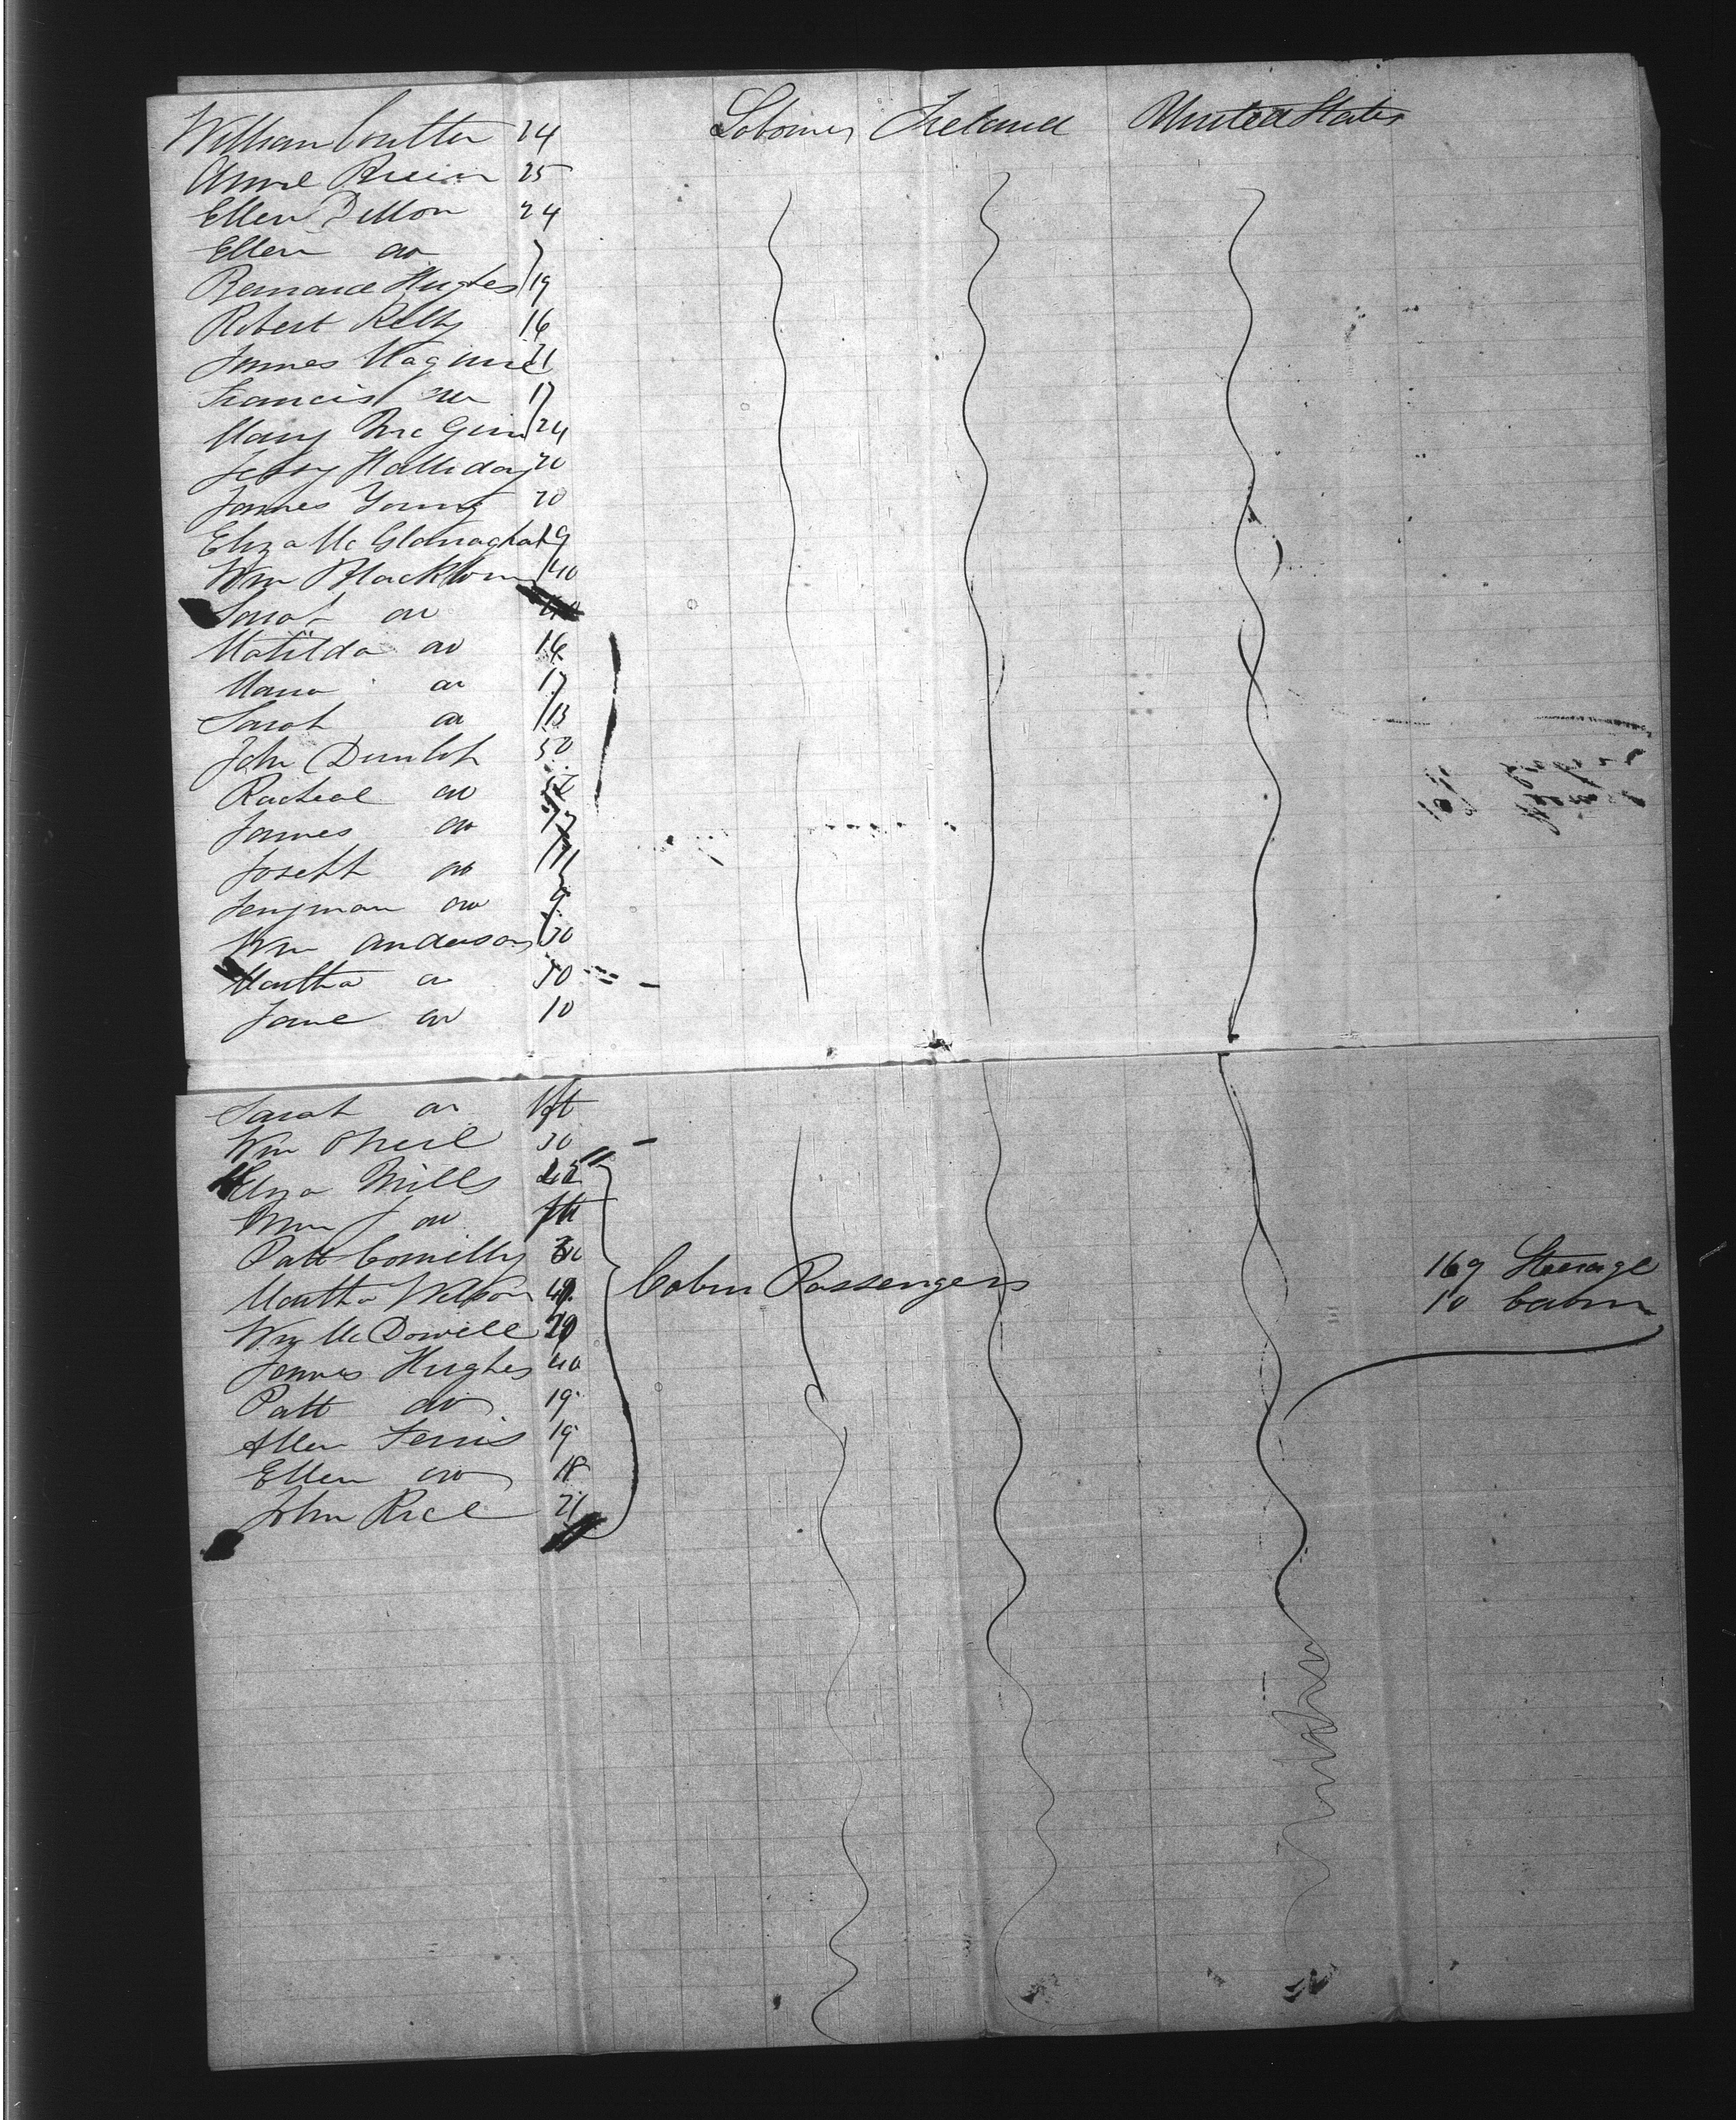 William Coulter 24 Laborers Ireland United States
Anne Brein 25
Ellen Dillon 24
Ellen do
Bernard Hughes 19
Robert Kelly 16
James Maguire 21
Francis do 17
Mary McGinn 24
Jessy Halliday 20
James Young 20
Eliza McGlonaghan 19
Wm Blackburn 40
Sarah do 40
Matilda do 16
Maria do 17
Sarah do 13
John Dunlop 50
Racheal do
James do 17
Joseph do 11
Jenjman do 9
Wm Anderson 30
Martha do 30
Jane do 10
Sarah do Inft
Wm Oneil 30
Eliza Mills
Wm J do Inft
Patt Connelly 30
Martha Wilson
Cabin Passengers
169 Steerage
10 Cabin
Wm McDowell
James Hughes 40
Patt do 19
Allen Ferris 19
Ellen do 18
John Rice 21